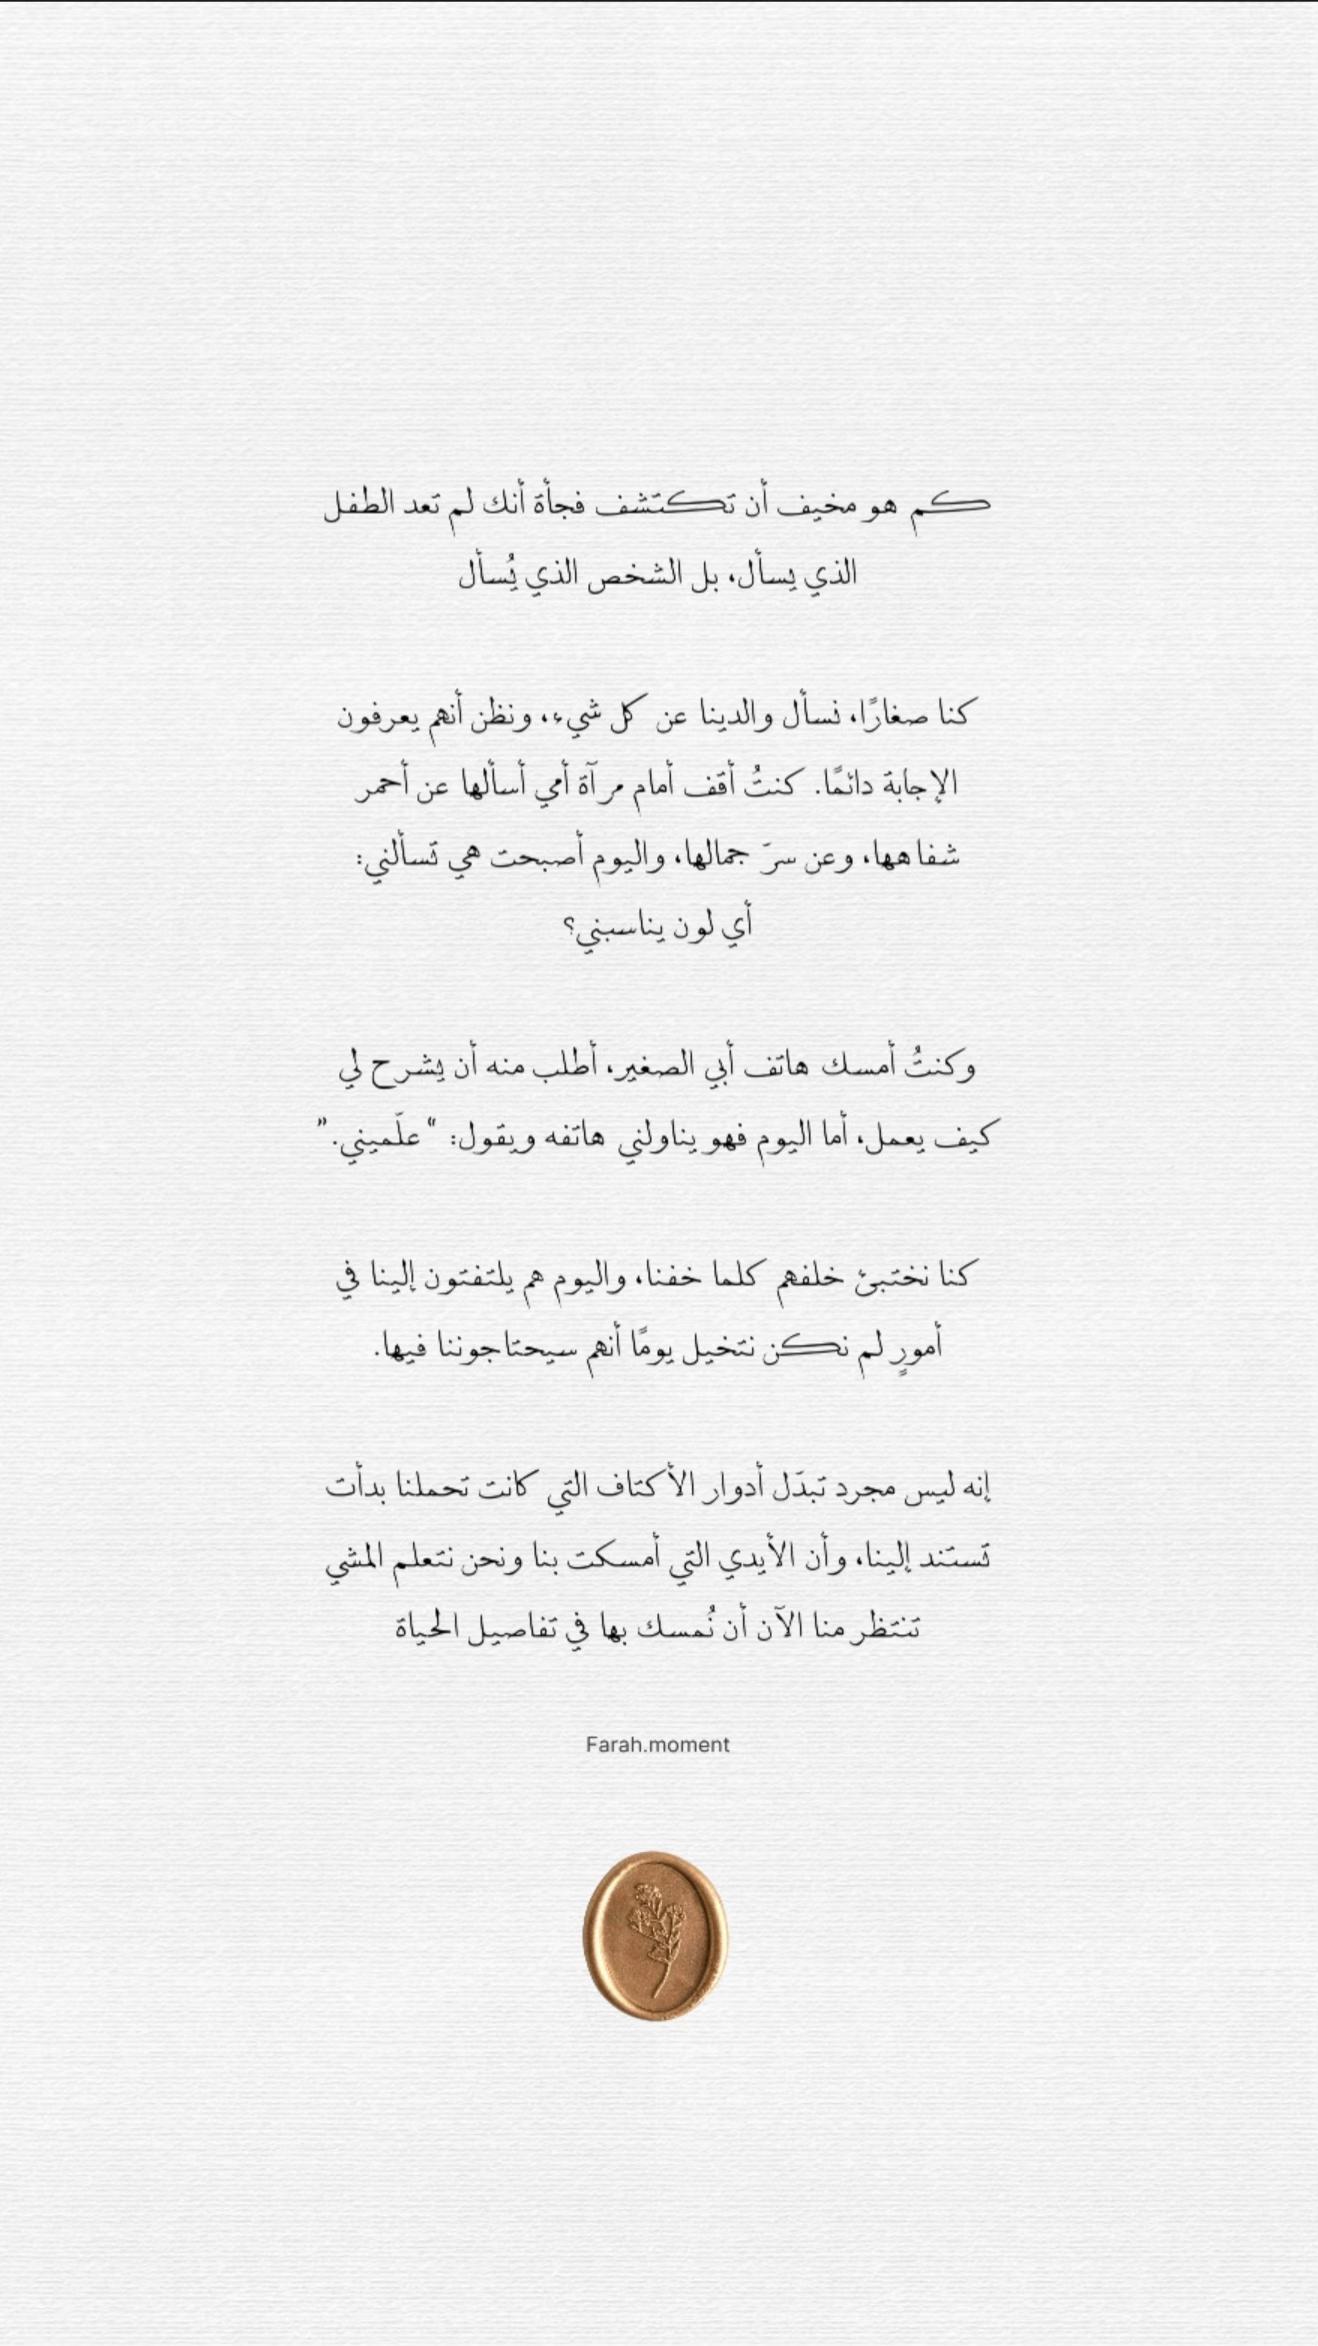 كم هو مخيف أن تكتشف فجأة أنك لم تعد الطفل
الذي يسأل، بل الشخص الذي يُسأل
كنا صغارًا، نسأل والدينا عن كل شيء، ونظن أنهم يعرفون
الإجابة دائمًا. كنتُ أقف أمام مرآة أمي أسألها عن أحمر
شفاهها، وعن سرَ جمالها، واليوم أصبحت هي تسألني:
أي لون يناسبني؟
وكنتُ أمسك هاتف أبي الصغير، أطلب منه أن يشرح لي
كيف يعمل، أما اليوم فهو يناولني هاتفه ويقول: “علّميني.”
كنا نختبئ خلفهم كلما خفنا، واليوم هم يلتفتون إلينا في
أمورٍ لم نكن نتخيل يومًا أنهم سيحتاجوننا فيها.
إنه ليس مجرد تبدَل أدوار الأكتاف التي كانت تحملنا بدأت
تستند إلينا، وأن الأيدي التي أمسكت بنا ونحن نتعلم المشي
تنتظر منا الآن أن نُمسك بها في تفاصيل الحياة
Farah.moment